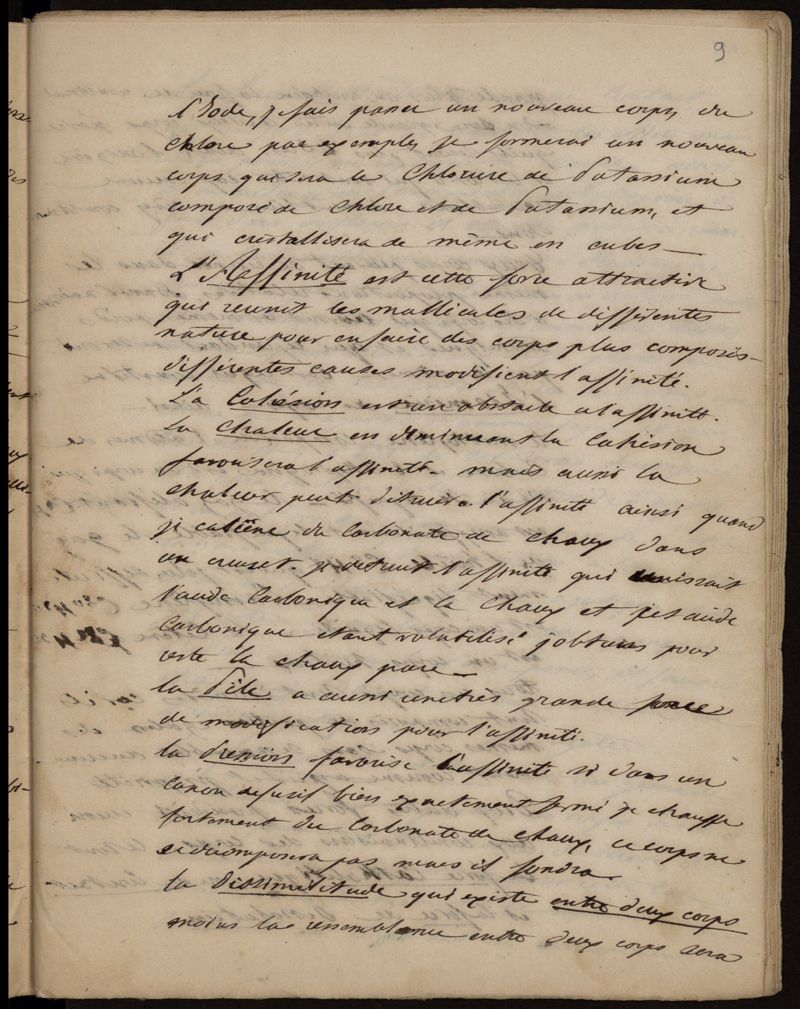 9
l'Iode, je fais passer un nouveau corps, du
chlore par exemple, se formerai un nouveau
corps qui sera le Chlorure de Potassium
composé de Chlore et de Potassium, et
qui cristallisera de même en cubes —
L'Affinité est cette force attractive
qui réunit les mollécules de différentes
nature pour en faire des corps plus composés —
différentes causes modifient l'affinité.
La Cohésion est un obstacle a l'affinité.
La Chaleur en diminuant la Cohésion
favorisera l'affinité. mais aussi la
chaleur peut détruire l'affinité ainsi quand
je calcine du Carbonate de chaux dans
un creuset. je détruit l'affinité qui unissait
l'acide Carbonique et la Chaux et l'acide
Carbonique etant volatilisé j'obtiens pour
reste la chaux pure —
la Pile a aussi une très grande force
de modifications pour l'affinité.
la Pression favorise l'affinité si dans un
canon de fusil bien exactement fermé je chauffe
fortement du Carbonate de Chaux, ce corps ne
se décomposera pas mais il fondra —
la Dissimilitude qui existe entre deux corps
moins la ressemblance entre deux corps sera